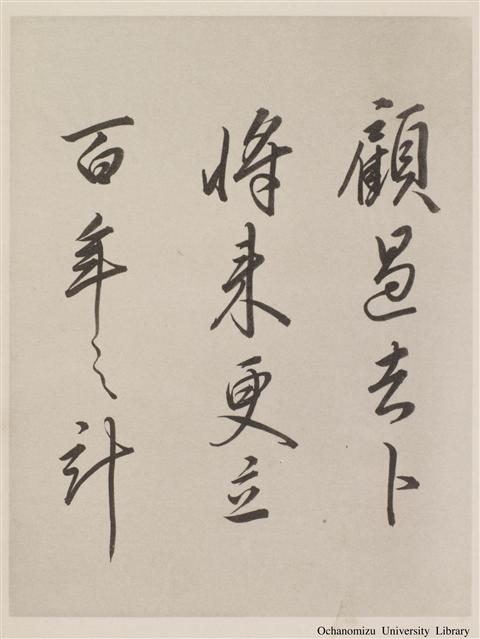 顧過去卜
將来更立
百年之計
Ochanomizu University Library